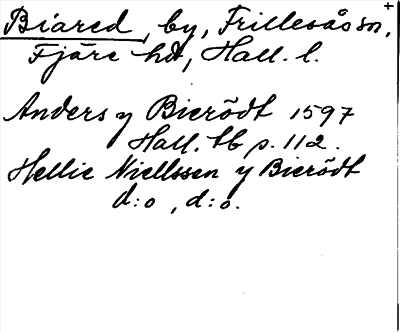 Biared, by, Frillesås sn, +
Fjäre hd, Hall. l.
Anders y Bierödt 1597
Hall. tb p. 112.
Hellie Niellssen y Bierödt
d:o, d:o.